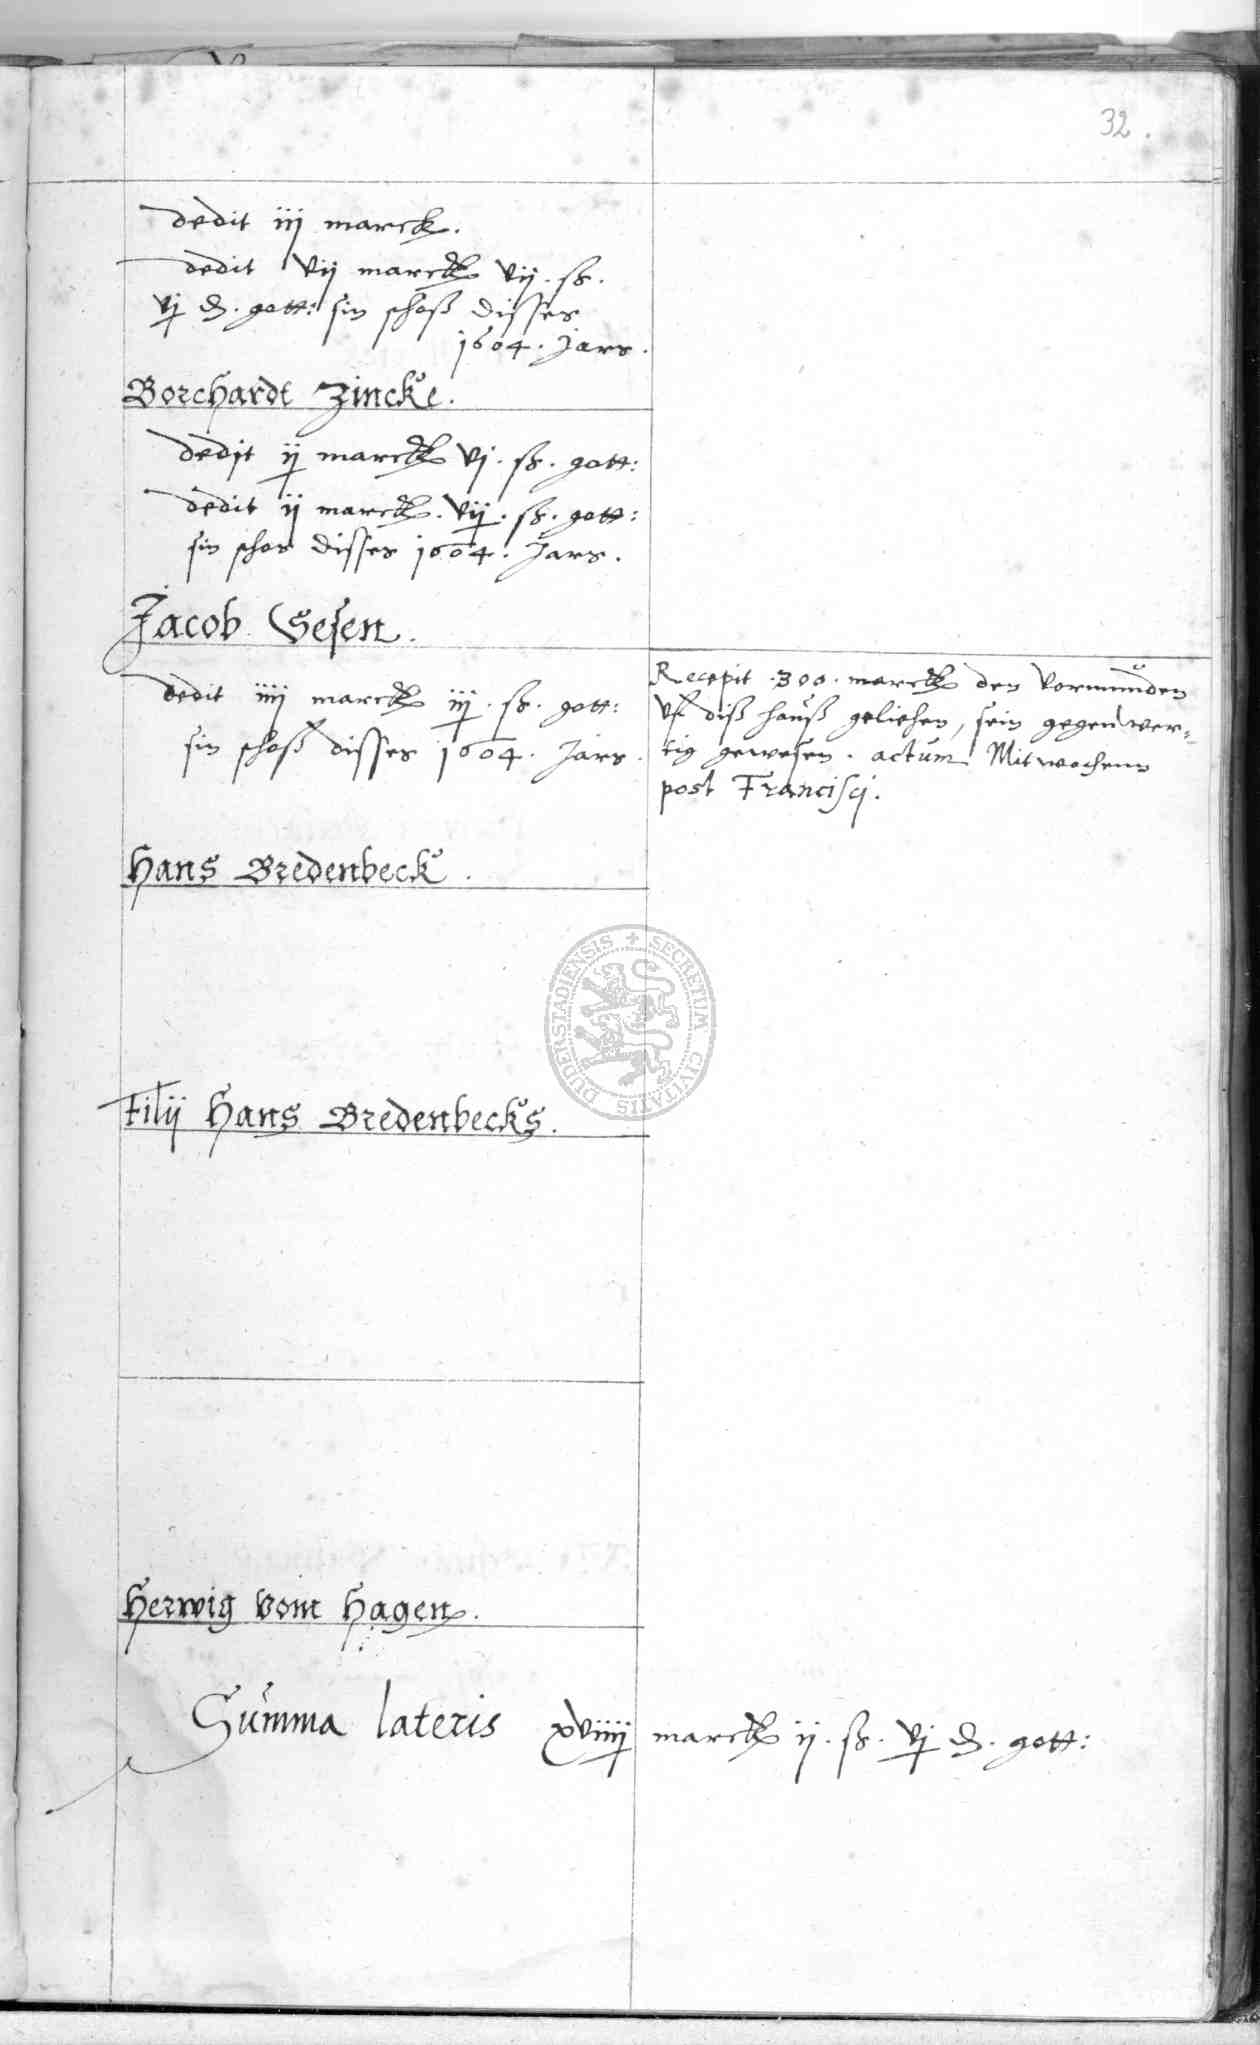 32.
dedit iij marck.
dedit vij marck vij. ß.
vj d. gott: sin schoß disses
1604. Jars.
Borchardt Zincke.
dedit ij marck vj. ß. gott:
dedit ij marck. vij. ß. gott:
sin schos disses 1604. Jars.
Jacob Gesen.
dedit iiij marck iij. ß. gott:
sin schoß disses 1604. Jars.
Recepit .300. marck den vormunden
uf diß hauß geliehen, sein gegenwer-
tig gewesen. actum Mitwochens
post Francisci.
Hans Bredenbeck.
DUDERSTADIENSIS + SECRETUM CIVITATIS
Filij Hans Bredenbecks.
Herwig vom Hagen.
Summa lateris xviiij marck ij. ß. vj d. gott: